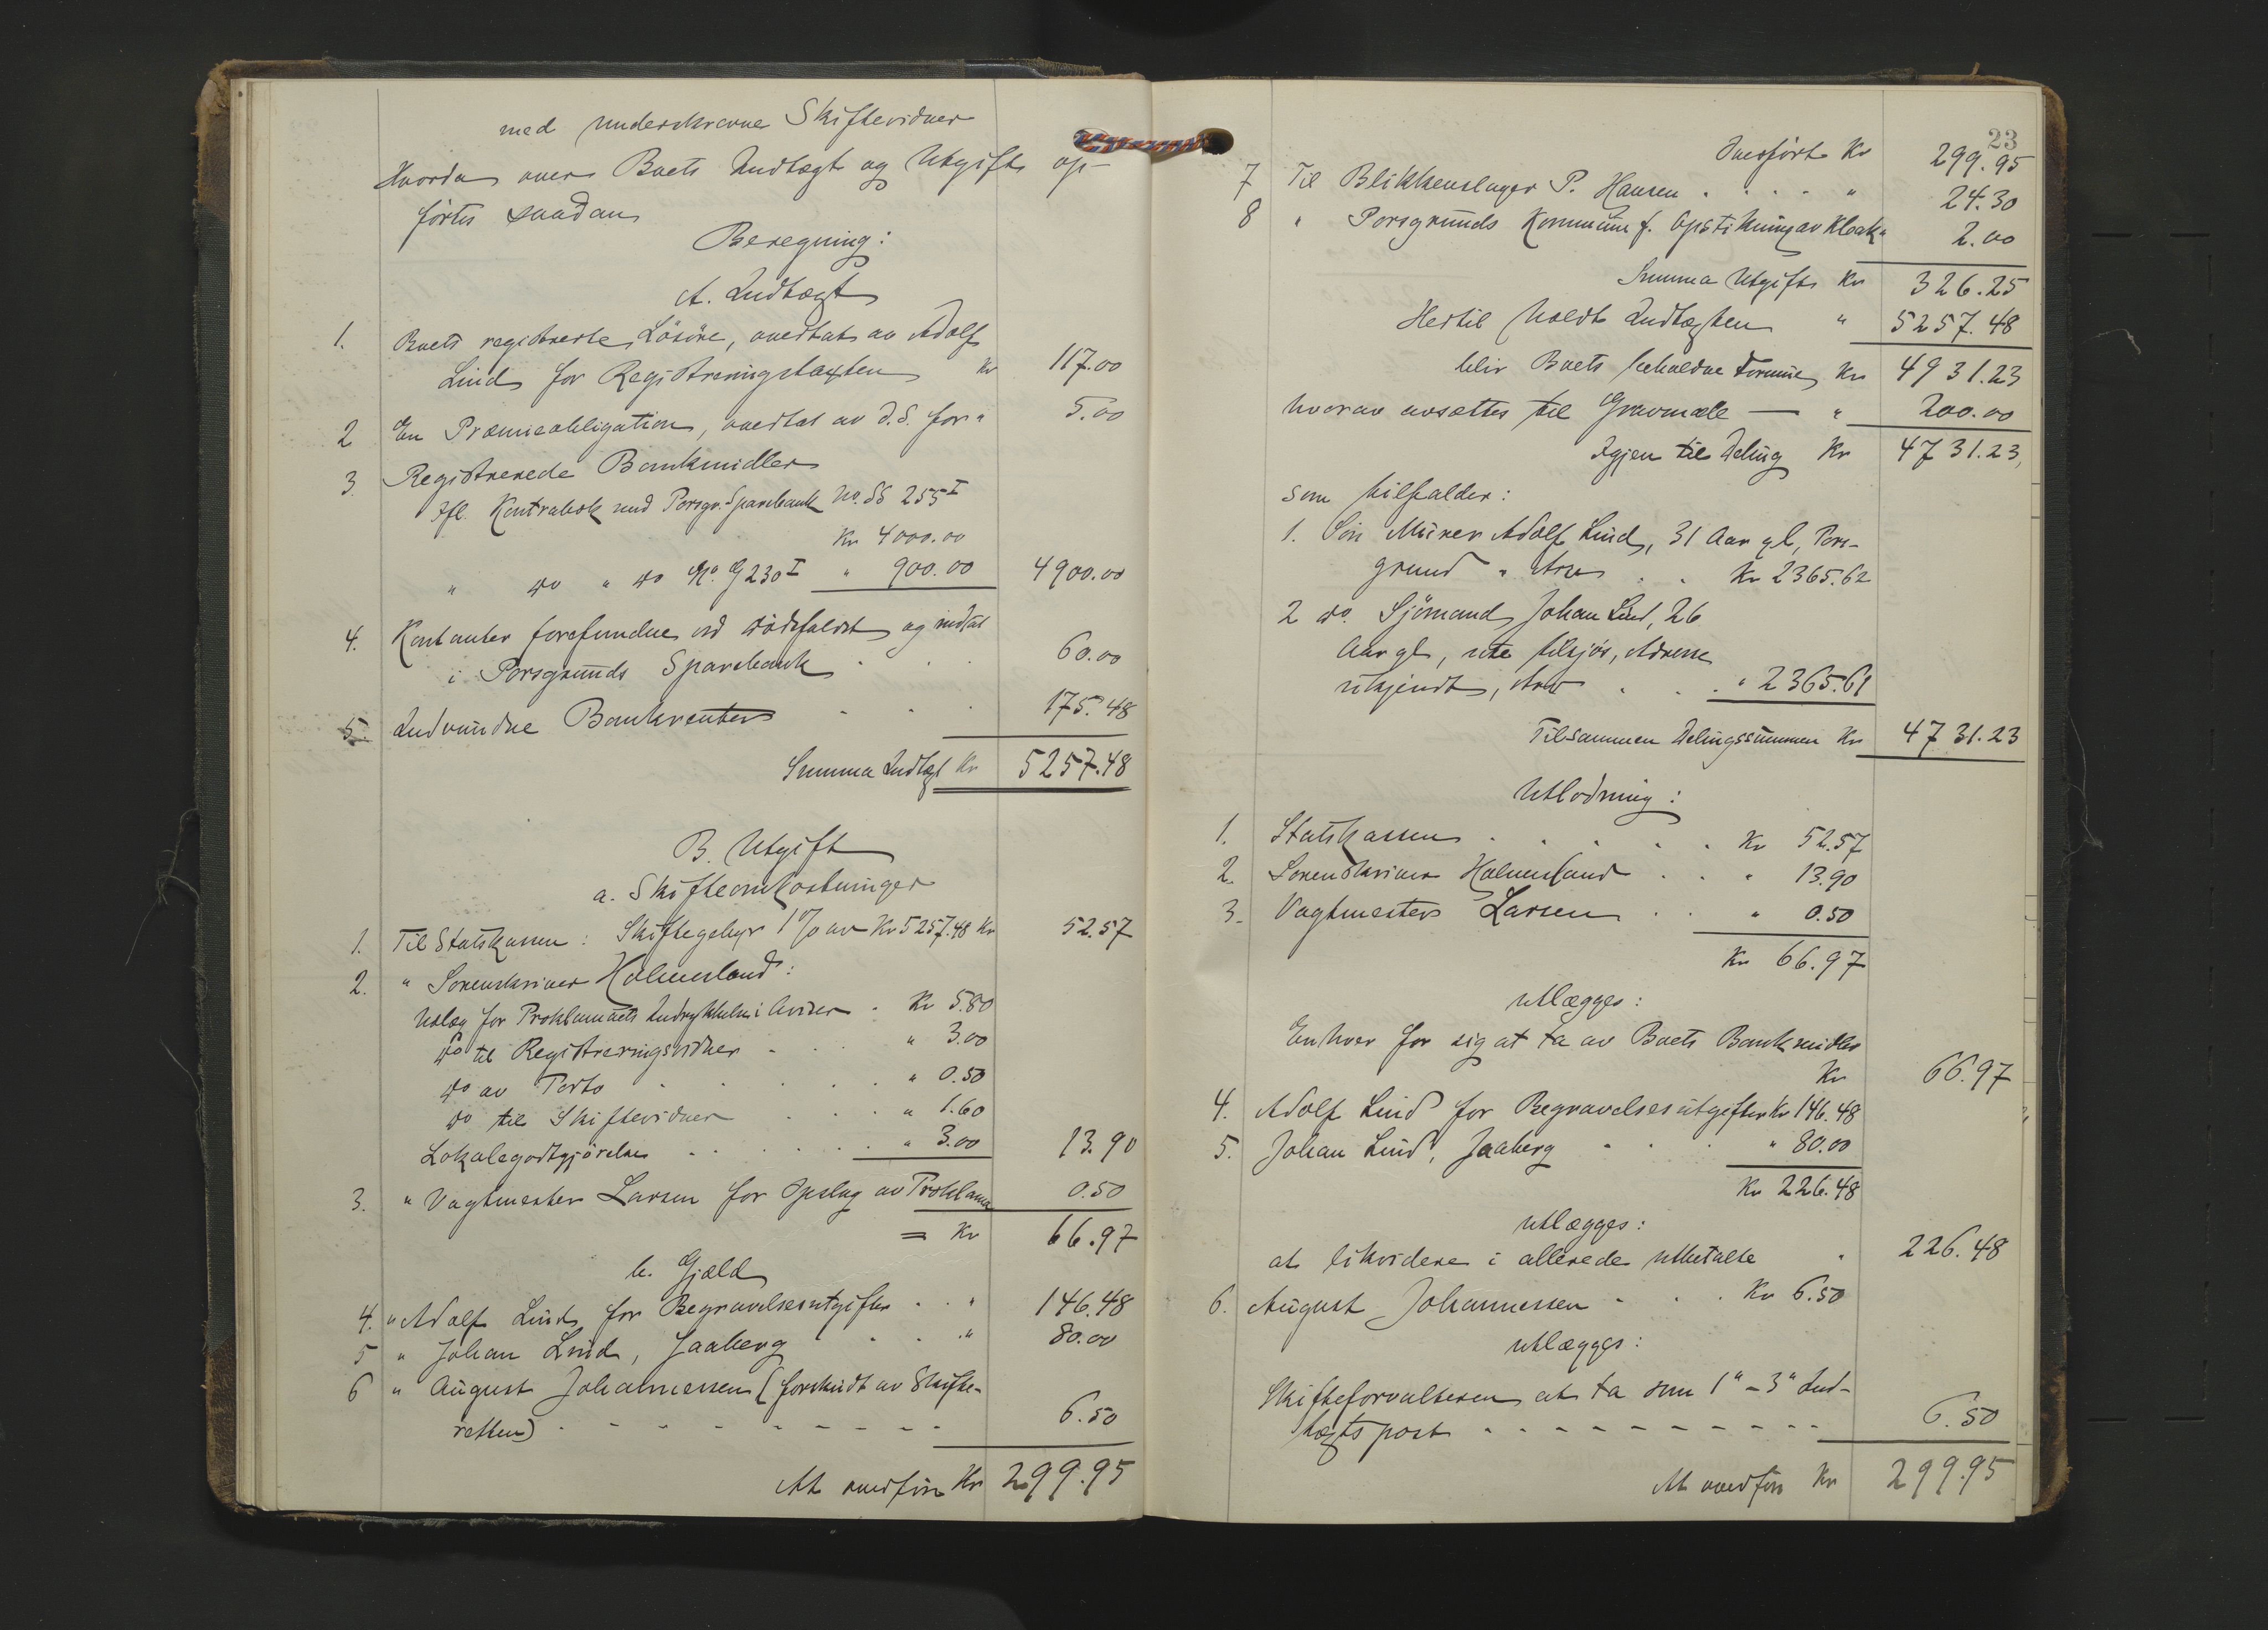 med underskrevne Skiftevidner
Hvorda over Boets Indtægt og Utgift op-
førtes saadan
Beregning:
A. Indtægt
1. Boets registrerte Løsøre, overtat av Adolf
Lind for Registreringstaxten Kr 117.00
2 En Præmieobligation, overtat av d.S. for " 5.00
3. Registrerede Bankmidler
Ifl. Kontrabok med Porsgr. Sparebank No. S6 255 I
Kr 4000.00
" do " do No. G 230 I " 900.00 4900.00
4. Kontanter forefundne ved Dødsfaldet og indsat
i Porsgrunds Sparebank . . . 60.00
5. Indvundne Bankrenter - - . 175.48
Summa Indtægt Kr 5257.48
B. Utgift
a. Skifteomkostninger
1. Til Statskassen: Skiftegebyr 1 % av Kr 5257.48 Kr 52.57
2. " Sorenskriver Holmesland:
Utlæg for Proklamaets Indrykkelse i Aviser . Kr 5.80
do til Registreringsvidner - . . " 3.00
do av Porto . . . . " 0.50
do til Skiftevidner . . . " 1.60
Lokalegodtgjørelse . . . . . " 3.00 13.90
3. " Vagtmester Larsen for Opslag av Proklama 0.50
= Kr 66.97
b. Gjæld
4. " Adolf Lind for Begravelsesutgifter . . " 146.48
5 " Johan Lind, Jaaberg - . . " 80.00
6 " August Johannessen (forskudt av Skifte-
retten) - - - - - - - - 6.50
At overføre Kr 299.95
23
Overført Kr 299.95
7 Til Blikkenslager P. Hansen . . . . " 24.30
8 " Porsgrunds Kommune f. Opstikning av Kloak " 2.00
Summa Utgift Kr 326.25
Hertil holdt Indtægten " 5257.48
blir Boets beholdne Formue Kr 4931.23
hvorav avsættes til Gravmæle — " 200.00
Igjen til Deling Kr 4731.23,
som tilfalder:
1. Søn Murer Adolf Lind, 31 Aar gl, Pors-
grund " Arv . . Kr 2365.62
2 do. Sjömand Johan Lind, 26
Aar gl, ute tilsjös, Adresse
ukjendt, Arv . . . " 2365.61
Tilsammen Delingssummen Kr 4731.23
Utlodning:
1. Statskassen . . . . . Kr 52.57
2. Sorenskriver Holmesland . . " 13.90
3. Vagtmester Larsen . . " 0.50
Kr 66.97
utlægges:
Enhver for sig at ta av Boets Bankmidler
Kr 66.97
4. Adolf Lind for Begravelsesutgifter Kr 146.48
5. Johan Lind, Jaaberg . . . " 80.00
Kr 226.48
utlægges:
at likvidere i allerede utbetalte " 226.48
6. August Johannessen - . . Kr 6.50
utlægges:
Skifteforvalteren at ta som 1" - 3" Ind-
tægtspost - - - - - - - - - - 6.50
At overføre Kr 299.95